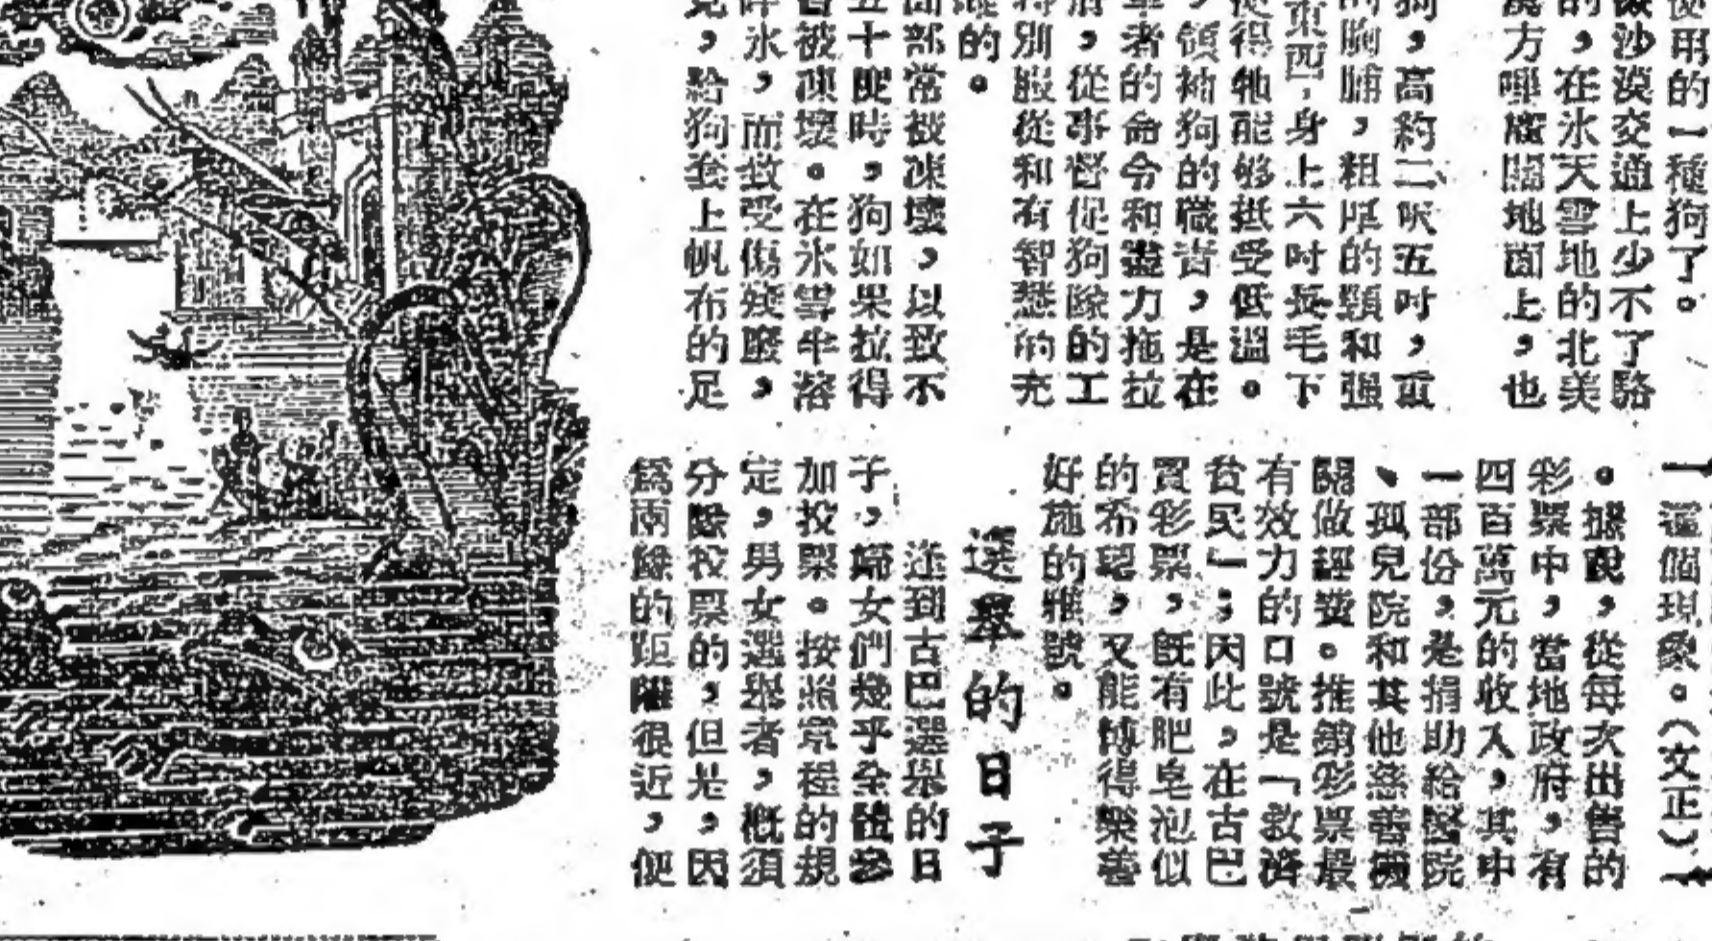 使用的一種狗了。
沙漠交通上少不了駱
的,在氷天雪地的北美
方 地面上,也
狗,高約二呎五吋,重
胸脯,粗厚的頸和强
東西,身上六吋長毛下
使得牠能够抵受低溫。
,領袖狗的職責,是在
者的命令和盡力拖拉
,從事督促狗隊的工
特別服從和有智慧的充
的。
面部常被凍壞,以致不
五十度時,狗如果拉得
被凍壞。在氷雪半溶
氷,而致受傷殘廢,
,給狗套上帆布的足
一這個現象。(文正)
。據說,從每次出售的
彩票中,當地政府,有
四百萬元的收入,其中
一部份,是捐助給醫院
、孤兒院和其他慈善機
關做經費。推銷彩票最
有效力的口號是「救濟
貧民」;因此,在古巴
買彩票,旣有肥皂泡似
的希望,又能博得樂善
好施的雅號。
選舉的日子
逢到古巴選舉的日
子,婦女們幾乎全體參
加投票。按照章程的規
定,男女選舉者,槪須
分隊投票的,但是,因
爲兩隊的距離很近,便